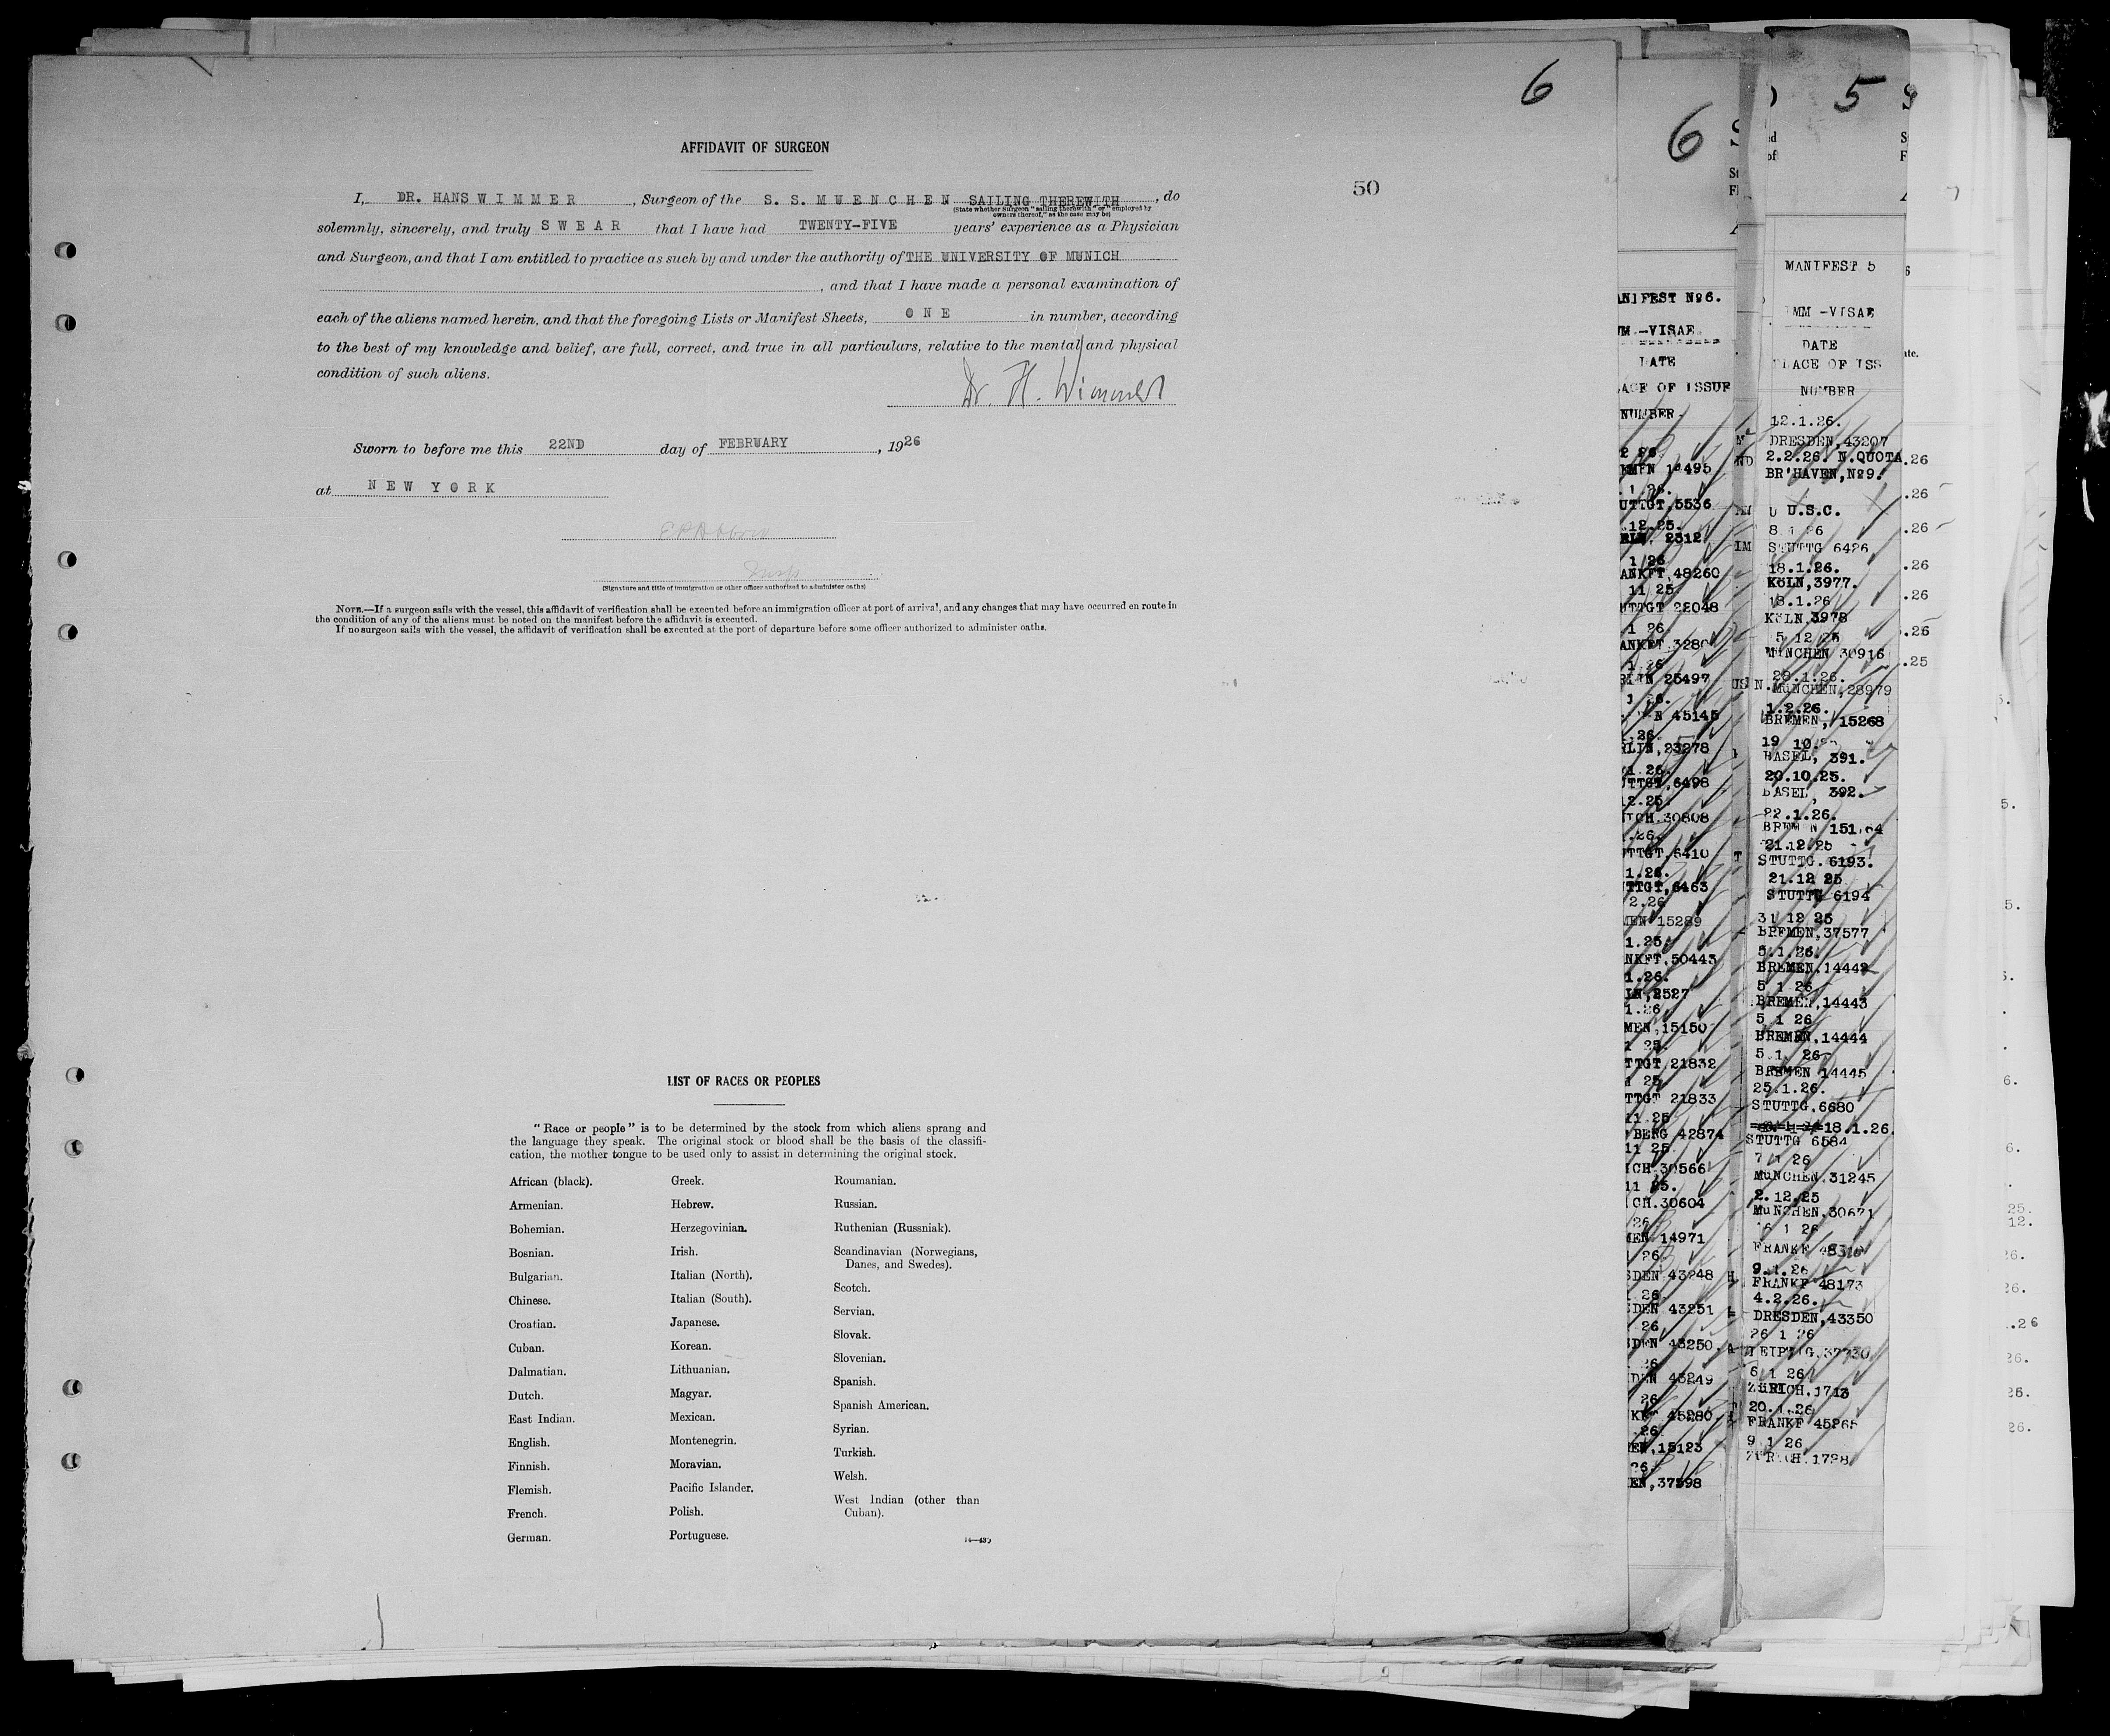 6
AFFIDAVIT OF SURGEON
50
I, DR. HANS W I M M E R, Surgeon of the S. S. M U E N C H E N SAILING THEREWITH, do
(State whether surgeon "sailing therewith" or "employed by
owners thereof," as the case may be)
solemnly, sincerely, and truly S W E A R that I have had TWENTY-FIVE years' experience as a Physician
and Surgeon, and that I am entitled to practice as such by and under the authority of THE UNIVERSITY OF MUNICH
, and that I have made a personal examination of
each of the aliens named herein, and that the foregoing Lists or Manifest Sheets, O N E in number, according
to the best of my knowledge and belief, are full, correct, and true in all particulars, relative to the mental and physical
condition of such aliens.
Dr. H. Wimmer
Sworn to before me this 22ND day of FEBRUARY, 1926
at N E W Y O R K
(Signature and title of immigration or other officer authorized to administer oaths)
NOTE.—If a surgeon sails with the vessel, this affidavit of verification shall be executed before an immigration officer at port of arrival, and any changes that may have occurred en route in
the condition of any of the aliens must be noted on the manifest before the affidavit is executed.
If no surgeon sails with the vessel, the affidavit of verification shall be executed at the port of departure before some officer authorized to administer oaths.
LIST OF RACES OR PEOPLES
"Race or people" is to be determined by the stock from which aliens sprang and
the language they speak. The original stock or blood shall be the basis of the classifi-
cation, the mother tongue to be used only to assist in determining the original stock.
African (black).
Armenian.
Bohemian.
Bosnian.
Bulgarian.
Chinese.
Croatian.
Cuban.
Dalmatian.
Dutch.
East Indian.
English.
Finnish.
Flemish.
French.
German.
Greek.
Hebrew.
Herzegovinian.
Irish.
Italian (North).
Italian (South).
Japanese.
Korean.
Lithuanian.
Magyar.
Mexican.
Montenegrin.
Moravian.
Pacific Islander.
Polish.
Portuguese.
Roumanian.
Russian.
Ruthenian (Russniak).
Scandinavian (Norwegians,
Danes, and Swedes).
Scotch.
Servian.
Slovak.
Slovenian.
Spanish.
Spanish American.
Syrian.
Turkish.
Welsh.
West Indian (other than
Cuban).
6
NIFEST No6.
-VISAE
DATE
OF ISSUE
NUMBER
UTTGT,5536
.12.25.
2312
1 26
ANKFT,48260
11 25
UTTGT 22048
1 26.
25497
45145
RLIN,23278
UTTGT,6498
12.25.
30808
TTGT,6410
1.26.
TTGT,6463
2.26
MEN 15289
1.25.
NKFT,50443
1.26.
IN,2527
1.26
MEN,15150
TTGT,21832
TTGT 21833
11.25
BERG 42874
11 25
ICH.30566
CH.30604
MEN 14971
SDEN 43248
SDEN 43251
SDEN 43250
DEN 43249
45280
EN,15123
EN,37598
5
MANIFEST 5
IMM -VISAE
DATE
PLACE OF ISS
NUMBER
12.1.26.
DRESDEN,43207
2.2.26. N.QUOTA
BR'HAVEN,No9.
U.S.C.
8 1 26
STUTTG 6426
18.1.26.
KöLN,3977.
18.1.26
KöLN.3978
5 12 25
MüNCHEN 30916
28.1.26.
MüNCHEN,28979
1.2.26.
BREMEN, 15268
BASEL, 391.
20.10.25.
BASEL, 392.
22.1.26.
21.12.25
STUTTG.6193.
21.12 25
STUTTG 6194
31 12 25
BREMEN,37577
5.1.26.
BREMEN.14442
5 1 26
BREMEN,14443
5 1 26
BREMEN,14444
5.1. 26
BREMEN 14445
25.1.26.
STUTTG.6680
18.1.26.
STUTTG 6584
7 1 26
MüNCHEN.31245
2.12.25
MüNCHEN.30671
9.1.26
FRANKF 48173
4.2.26.
DRESDEN,43350
26 1 26
6 1 26
ZüRICH.1713
20.1.26
FRANKF 45265
9 1 26
ZüRICH.1728